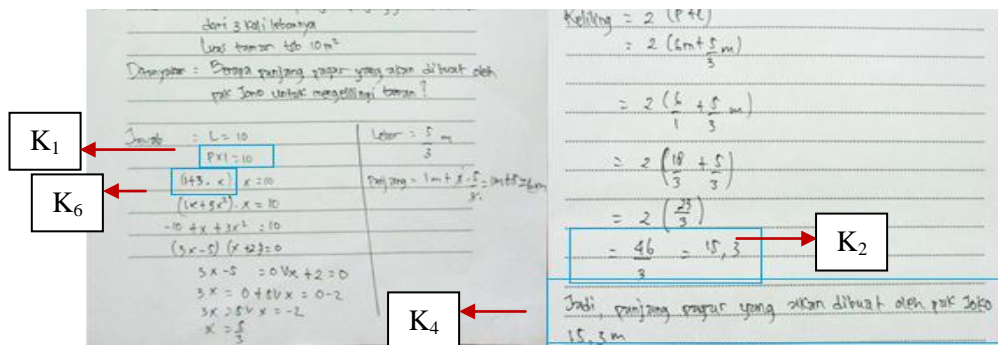 dari 3 kali lebarnya
Luas taman tsb 10 m²
Ditanyakan = Berapa panjang pagar yang akan dibuat oleh
pak Jono untuk mengelilingi taman?
Jawab = L = 10
P x l = 10
(1+3. x) x = 10
(1x + 3x²) . x = 10
-10 + x + 3x² = 10
(3x-5) (x+2) = 0
3x - 5 = 0 V x + 2 = 0
3x = 0 + 5 V x = 0 - 2
3x = 5 V x = -2
x = 5/3
Lebar = 5/3 m
Panjang = 1m + 3 . 5/3 = 1m + 5 = 6m
Keliling = 2 (P+l)
= 2 (6m + 5/3 m)
= 2 (6/1 + 5/3 m)
= 2 (18/3 + 5/3)
= 2 (23/3)
= 46/3 = 15,3
Jadi, panjang pagar yang akan dibuat oleh pak Joko
15,3 m
K1
K6
K2
K4